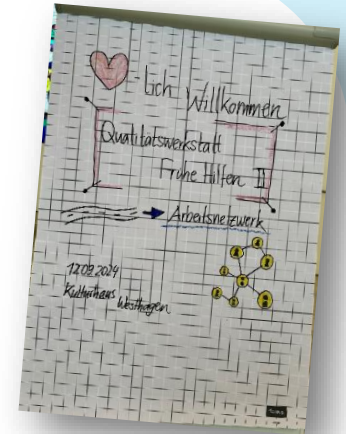 -lich Willkommen
Qualitätswerkstatt
Frühe Hilfen II
Arbeitsnetzwerk
12.09.2024
Kulturhaus
Westhagen